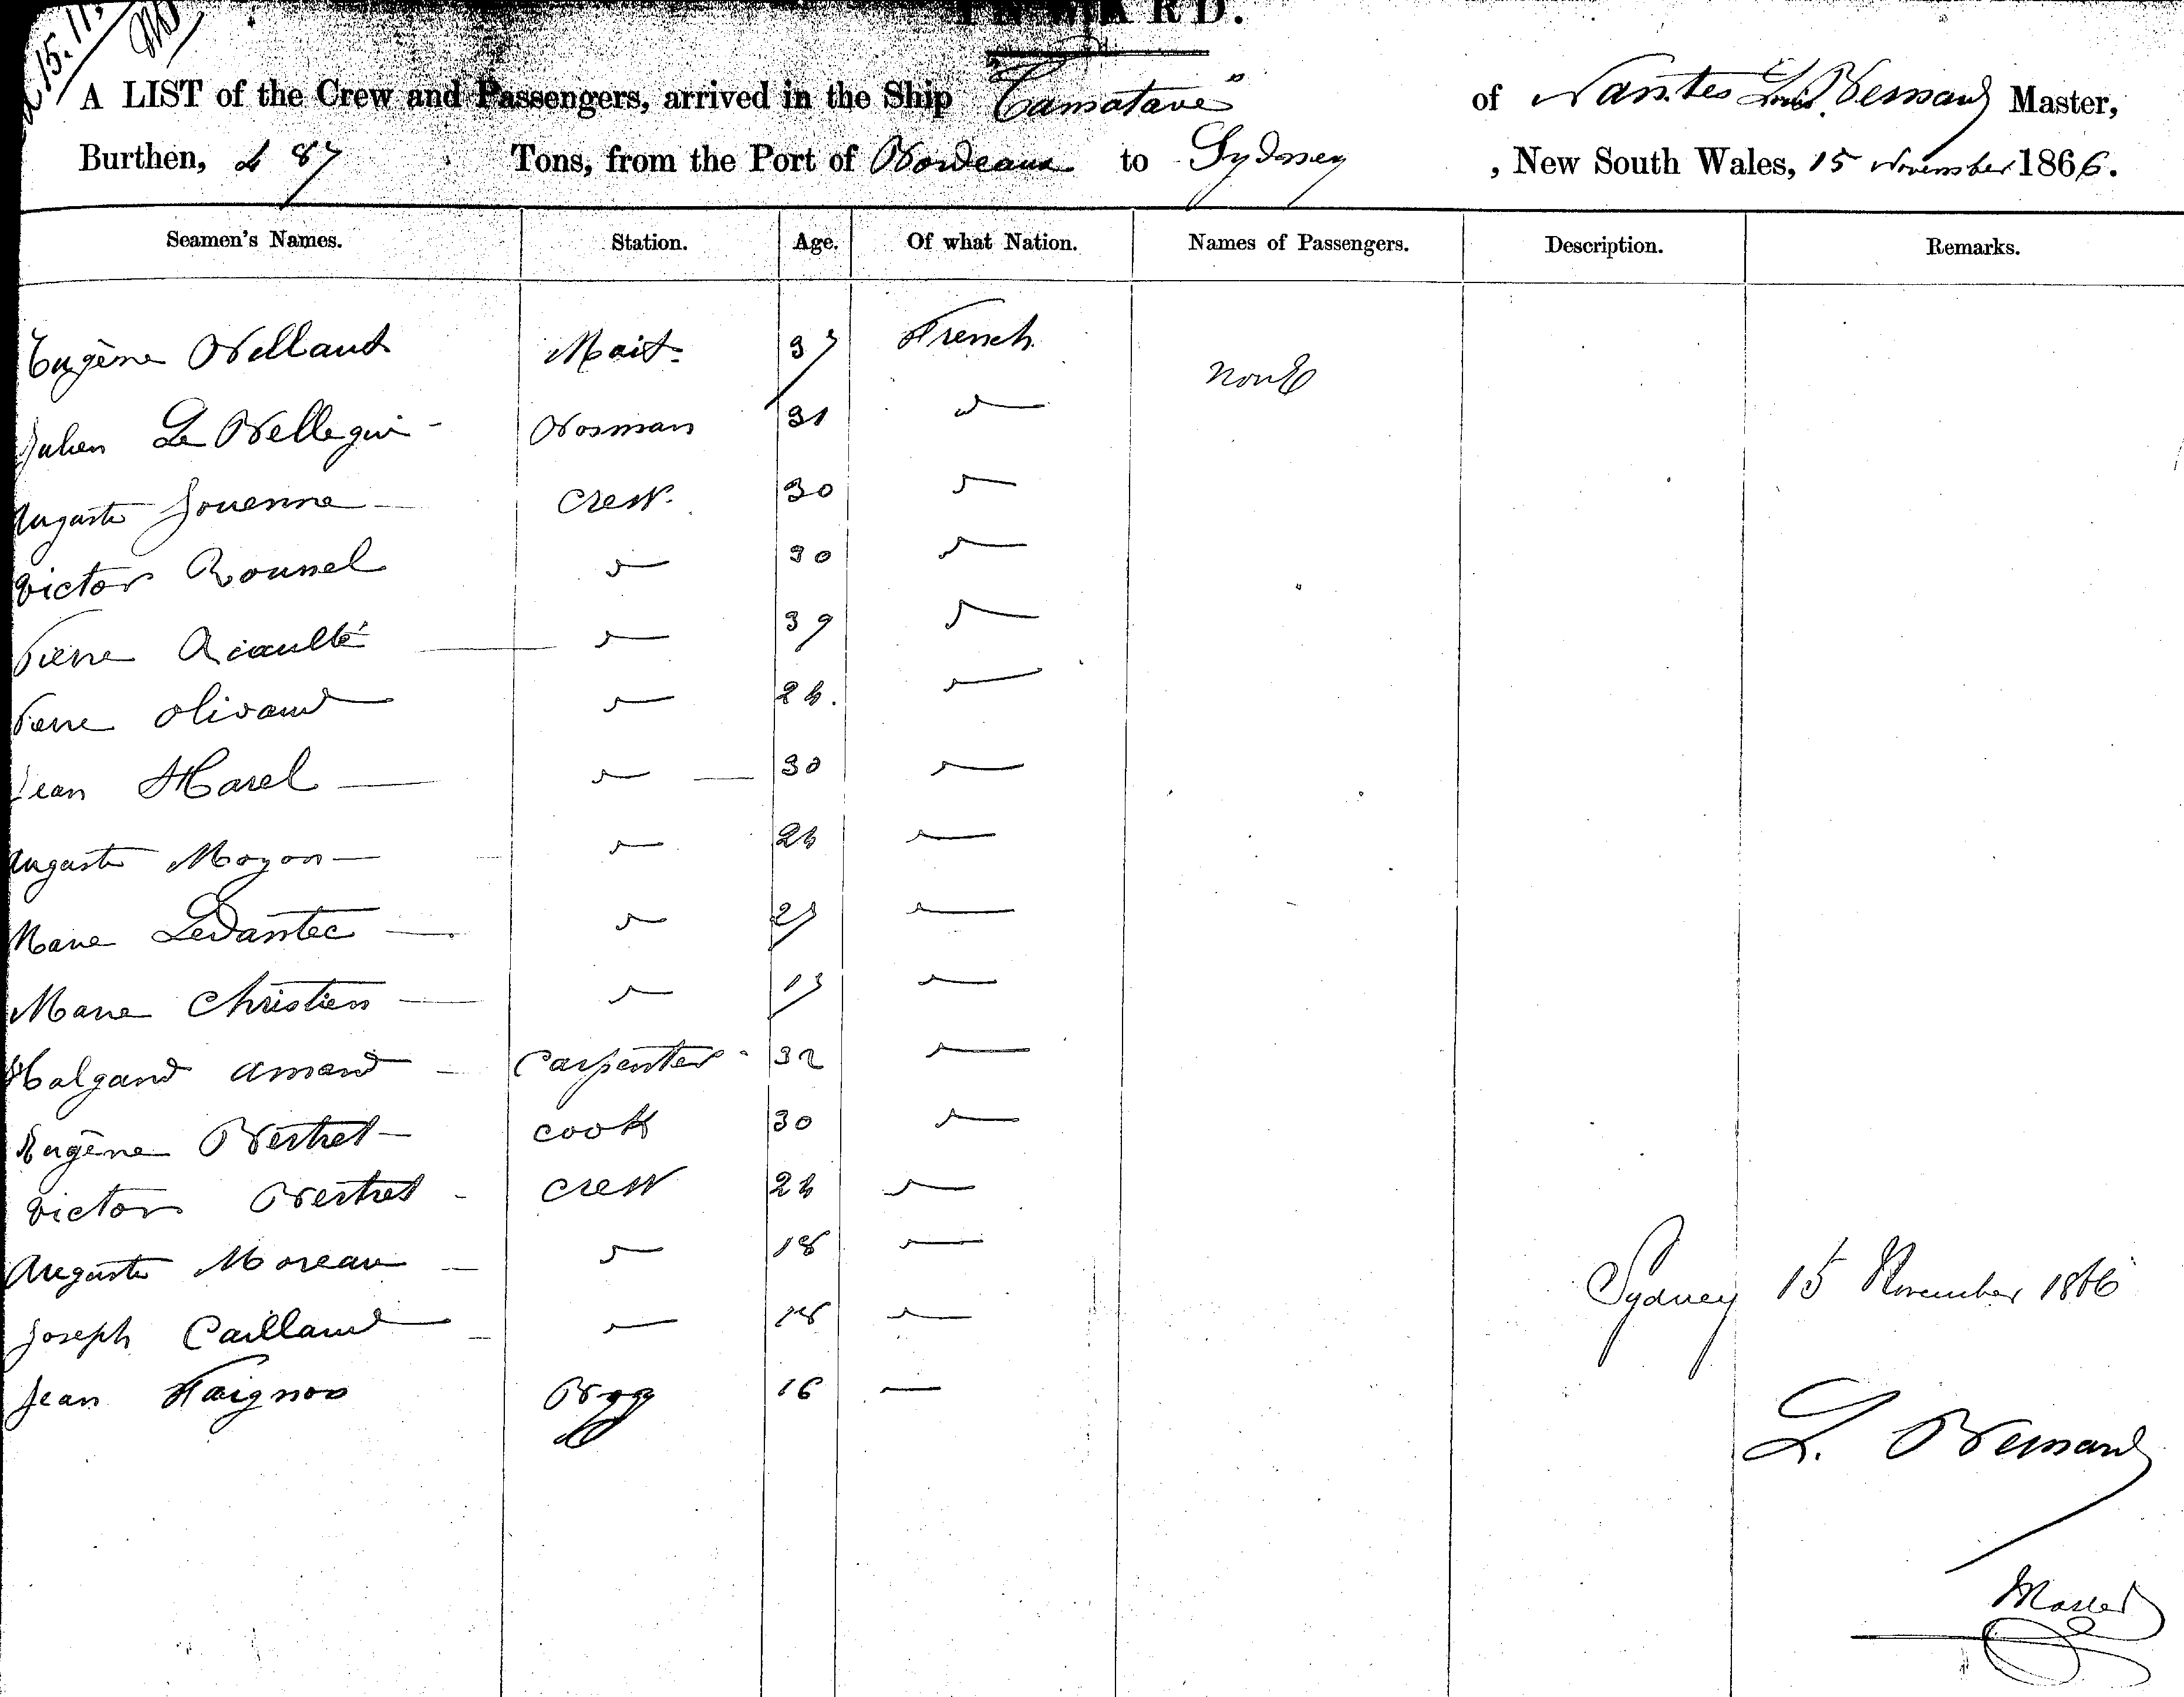 INWARD.
15.11.
A LIST of the Crew and Passengers, arrived in the Ship "Tamatave" of Nantes Louis Bernard Master,
Burthen, 487 Tons, from the Port of Bordeaux to Sydney, New South Wales, 15 November 1866.
Seamen's Names. Station. Age. Of what Nation. Names of Passengers. Description. Remarks.
Eugène Bellaud Mait. 37 French none
Julien Le Bellegui - Bosman 31 "
Auguste Jouenne - crew. 30 "
Victor Roussel " 30 "
Pierre Riaulté " 39 "
Pierre Olivaud " 24. "
Jean Harel " 30 "
Auguste Moyon " 24 "
Marie Ledantec " 27 "
Marie Christien " 17 "
Halgand amand carpenter 32 "
Eugène Bertret cook 30 "
Victor Bertret crew 24 "
Auguste Moreau " 18 "
Joseph Caillaud " 18 "
Jean Boy 16 "
Sydney 15 November 1866
L. Bernard
Master